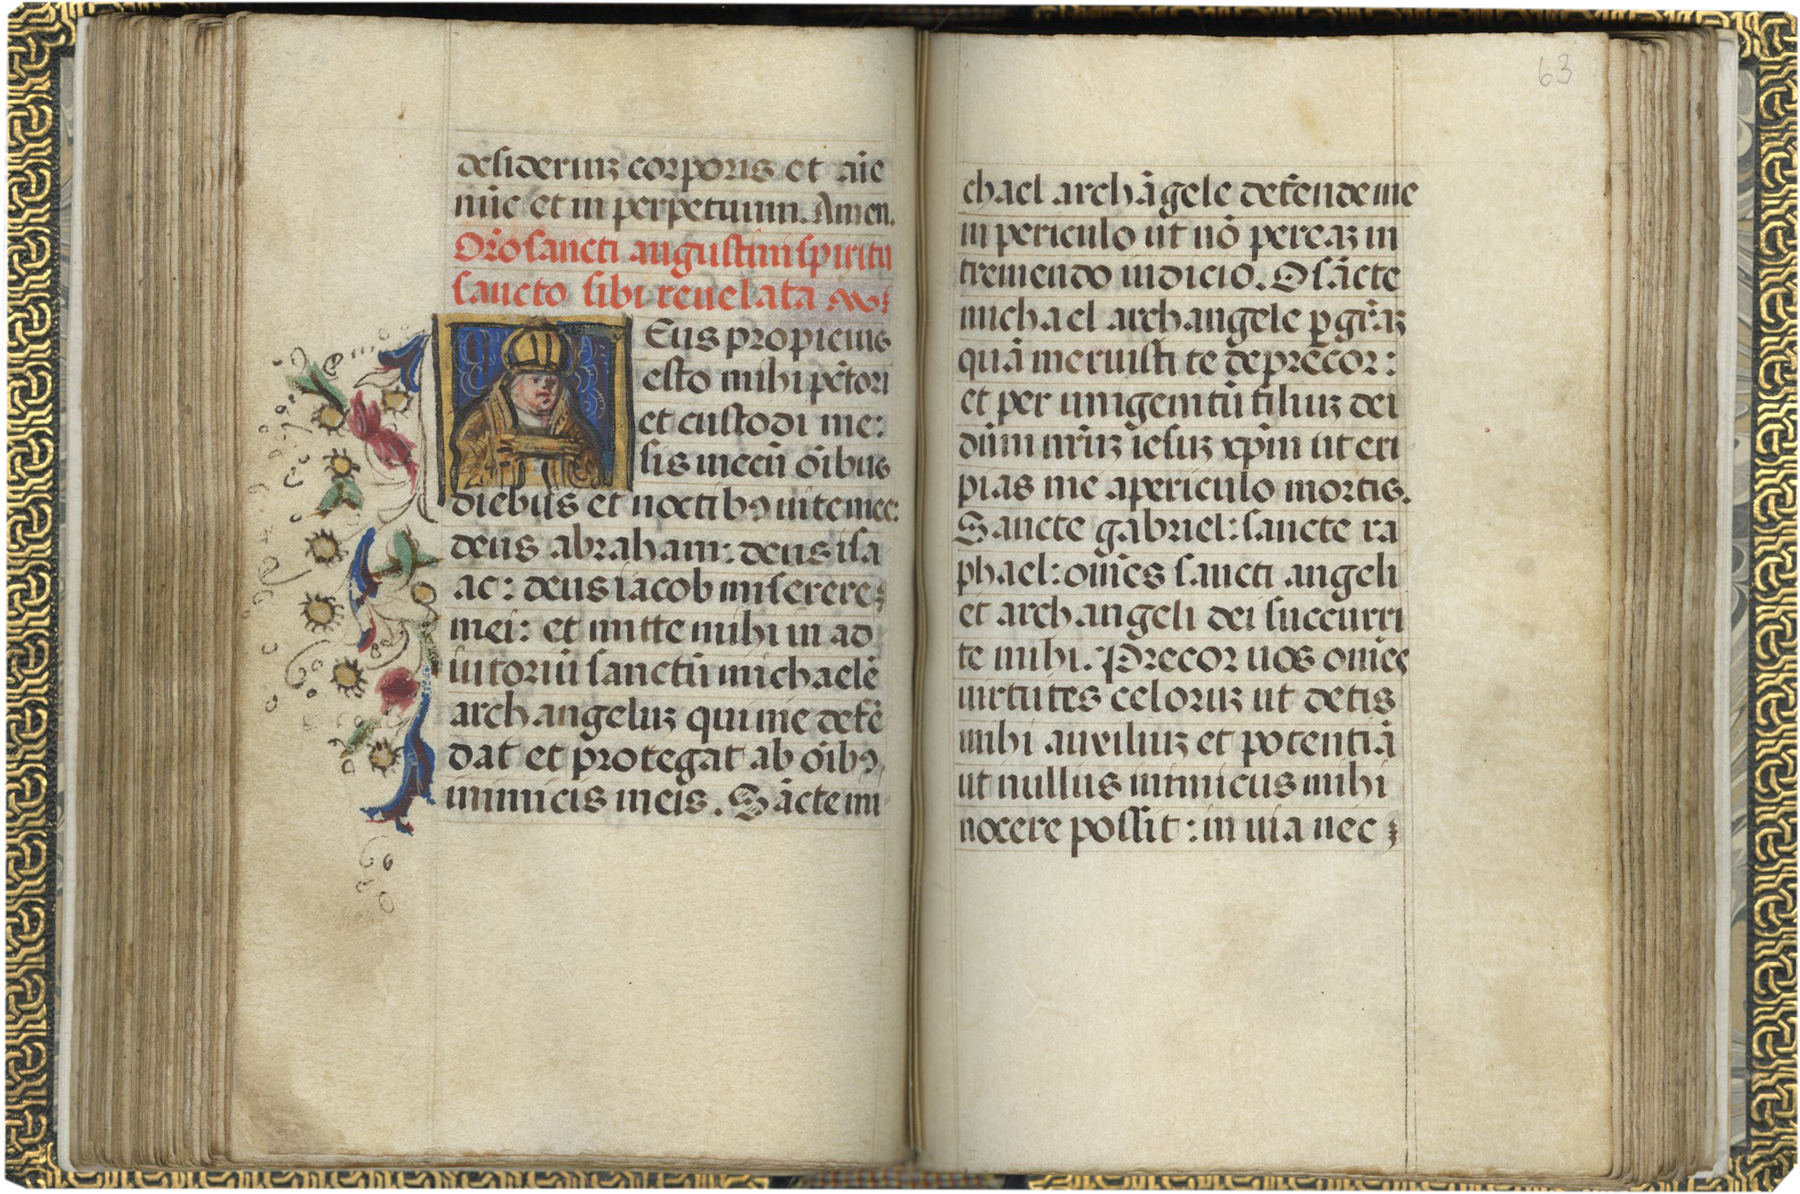 desideriuz corporis et aīe
mīe et in perpetuum. Amen.
Orō sancti augustini spiritu
sancto sibi reuelata
Eus propicius
esto mihi pctōri
et custodi me:
sis mecū oībus
diebus et noctibꝰ uite mee:
deus abraham: deus isa
ac: deus iacob miserere
mei: et mitte mihi in ad
iutoriū sanctū michaelē
archangeluz qui me defē
dat et protegat ab oībꝰ
inimicis meis. Sācte mi
63
chael archāgele defende me
in periculo ut nō pereaz in
tremendo iudicio. O sācte
michael archangele ꝑ grāz
quā meruisti te deprecor:
et per unigenitū filiuz dei
dūm nr̄uz iesuz xp̄m ut eri
pias me a periculo mortis.
Sancte gabriel: sancte ra
phael: om̄es sancti angeli
et archangeli dei succurri
te mihi. Precor uos om̄es
uirtutes celoruz ut detis
mihi auxiliuz et potentiā
ut nullus inimicus mihi
nocere possit: in uia nec